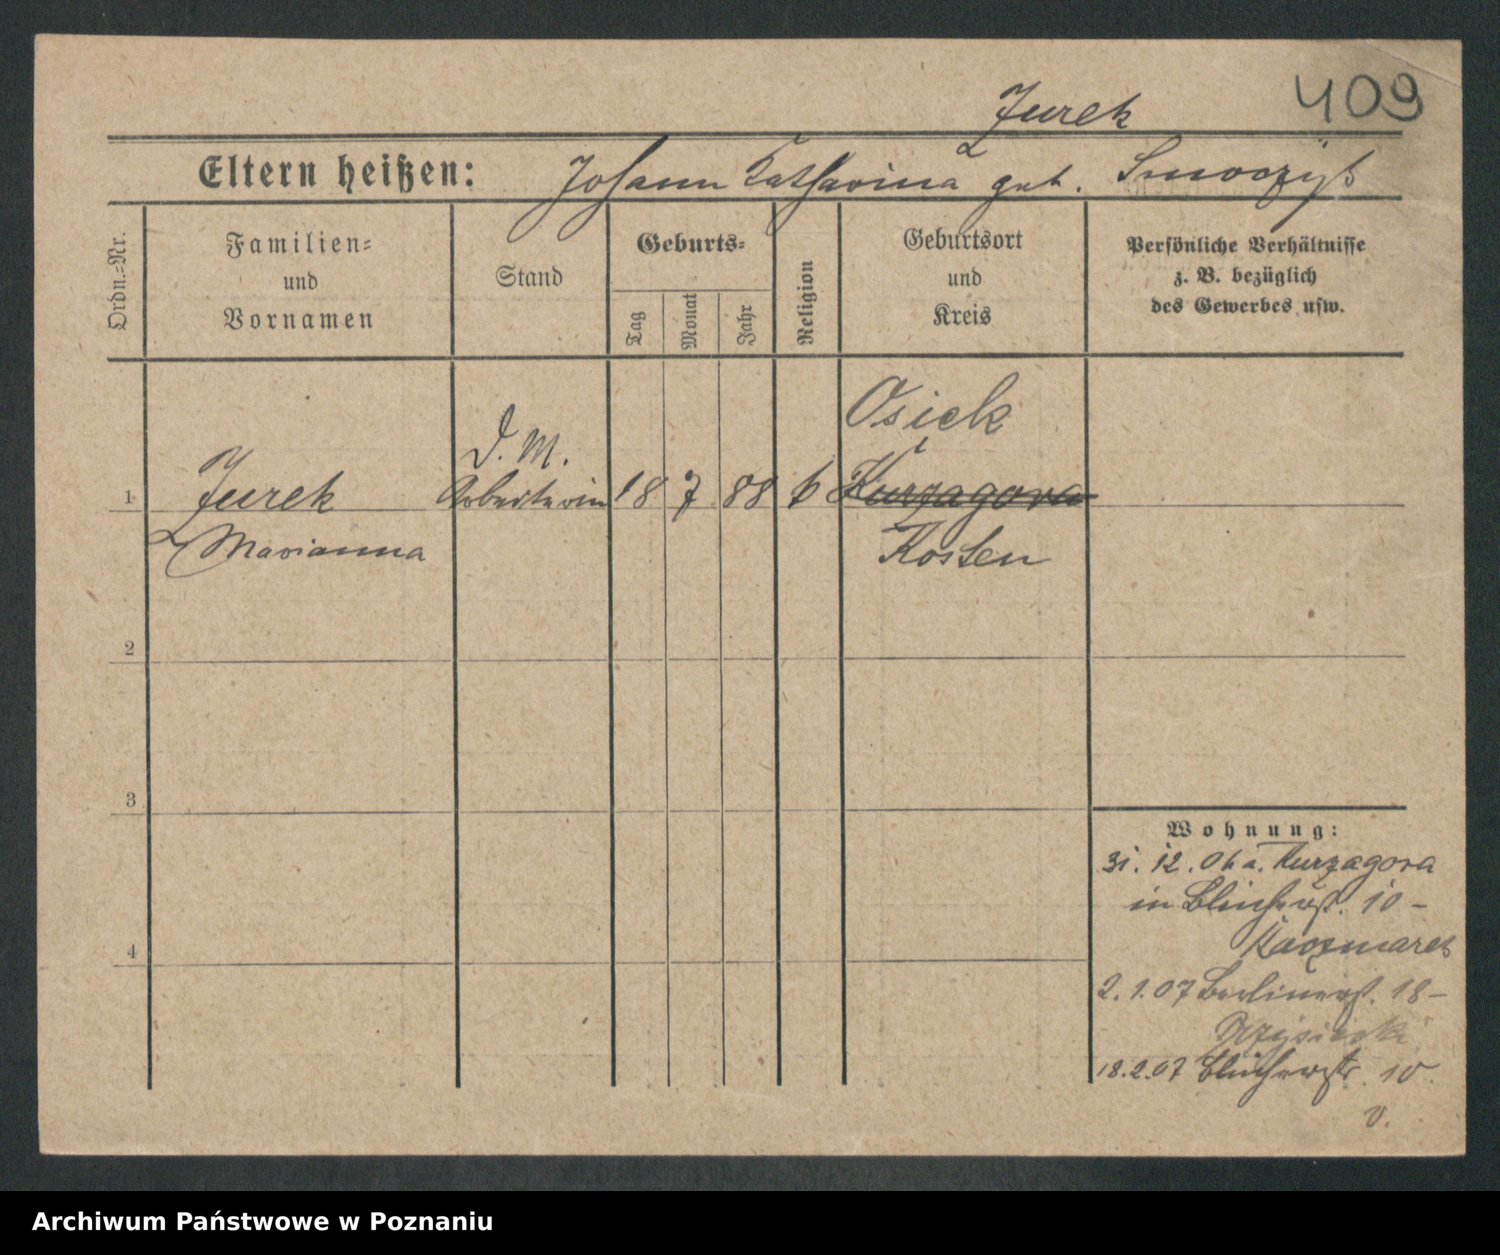 409
Jurek
Eltern heißen: Johann Katharina geb. Smoczyk
Ordn.=Nr.
Familien=
und
Vornamen
Stand
Geburts=
Tag
Monat
Jahr
Religion
Geburtsort
und
Kreis
Persönliche Verhältnisse
z. B. bezüglich
des Gewerbes usw.
Osiek
D. M.
1 Jurek Arbeiterin 18 7 88 Kurzagora
Marianna Kosten
2
3
Wohnung:
31. 12. 06 a. Kurzagora
in Blücherst. 10 -
Kaczmarek
4
2. 1. 07 Berlinerst. 18 -
18. 2. 07 Blücherstr. 10
v.
Archiwum Państwowe w Poznaniu